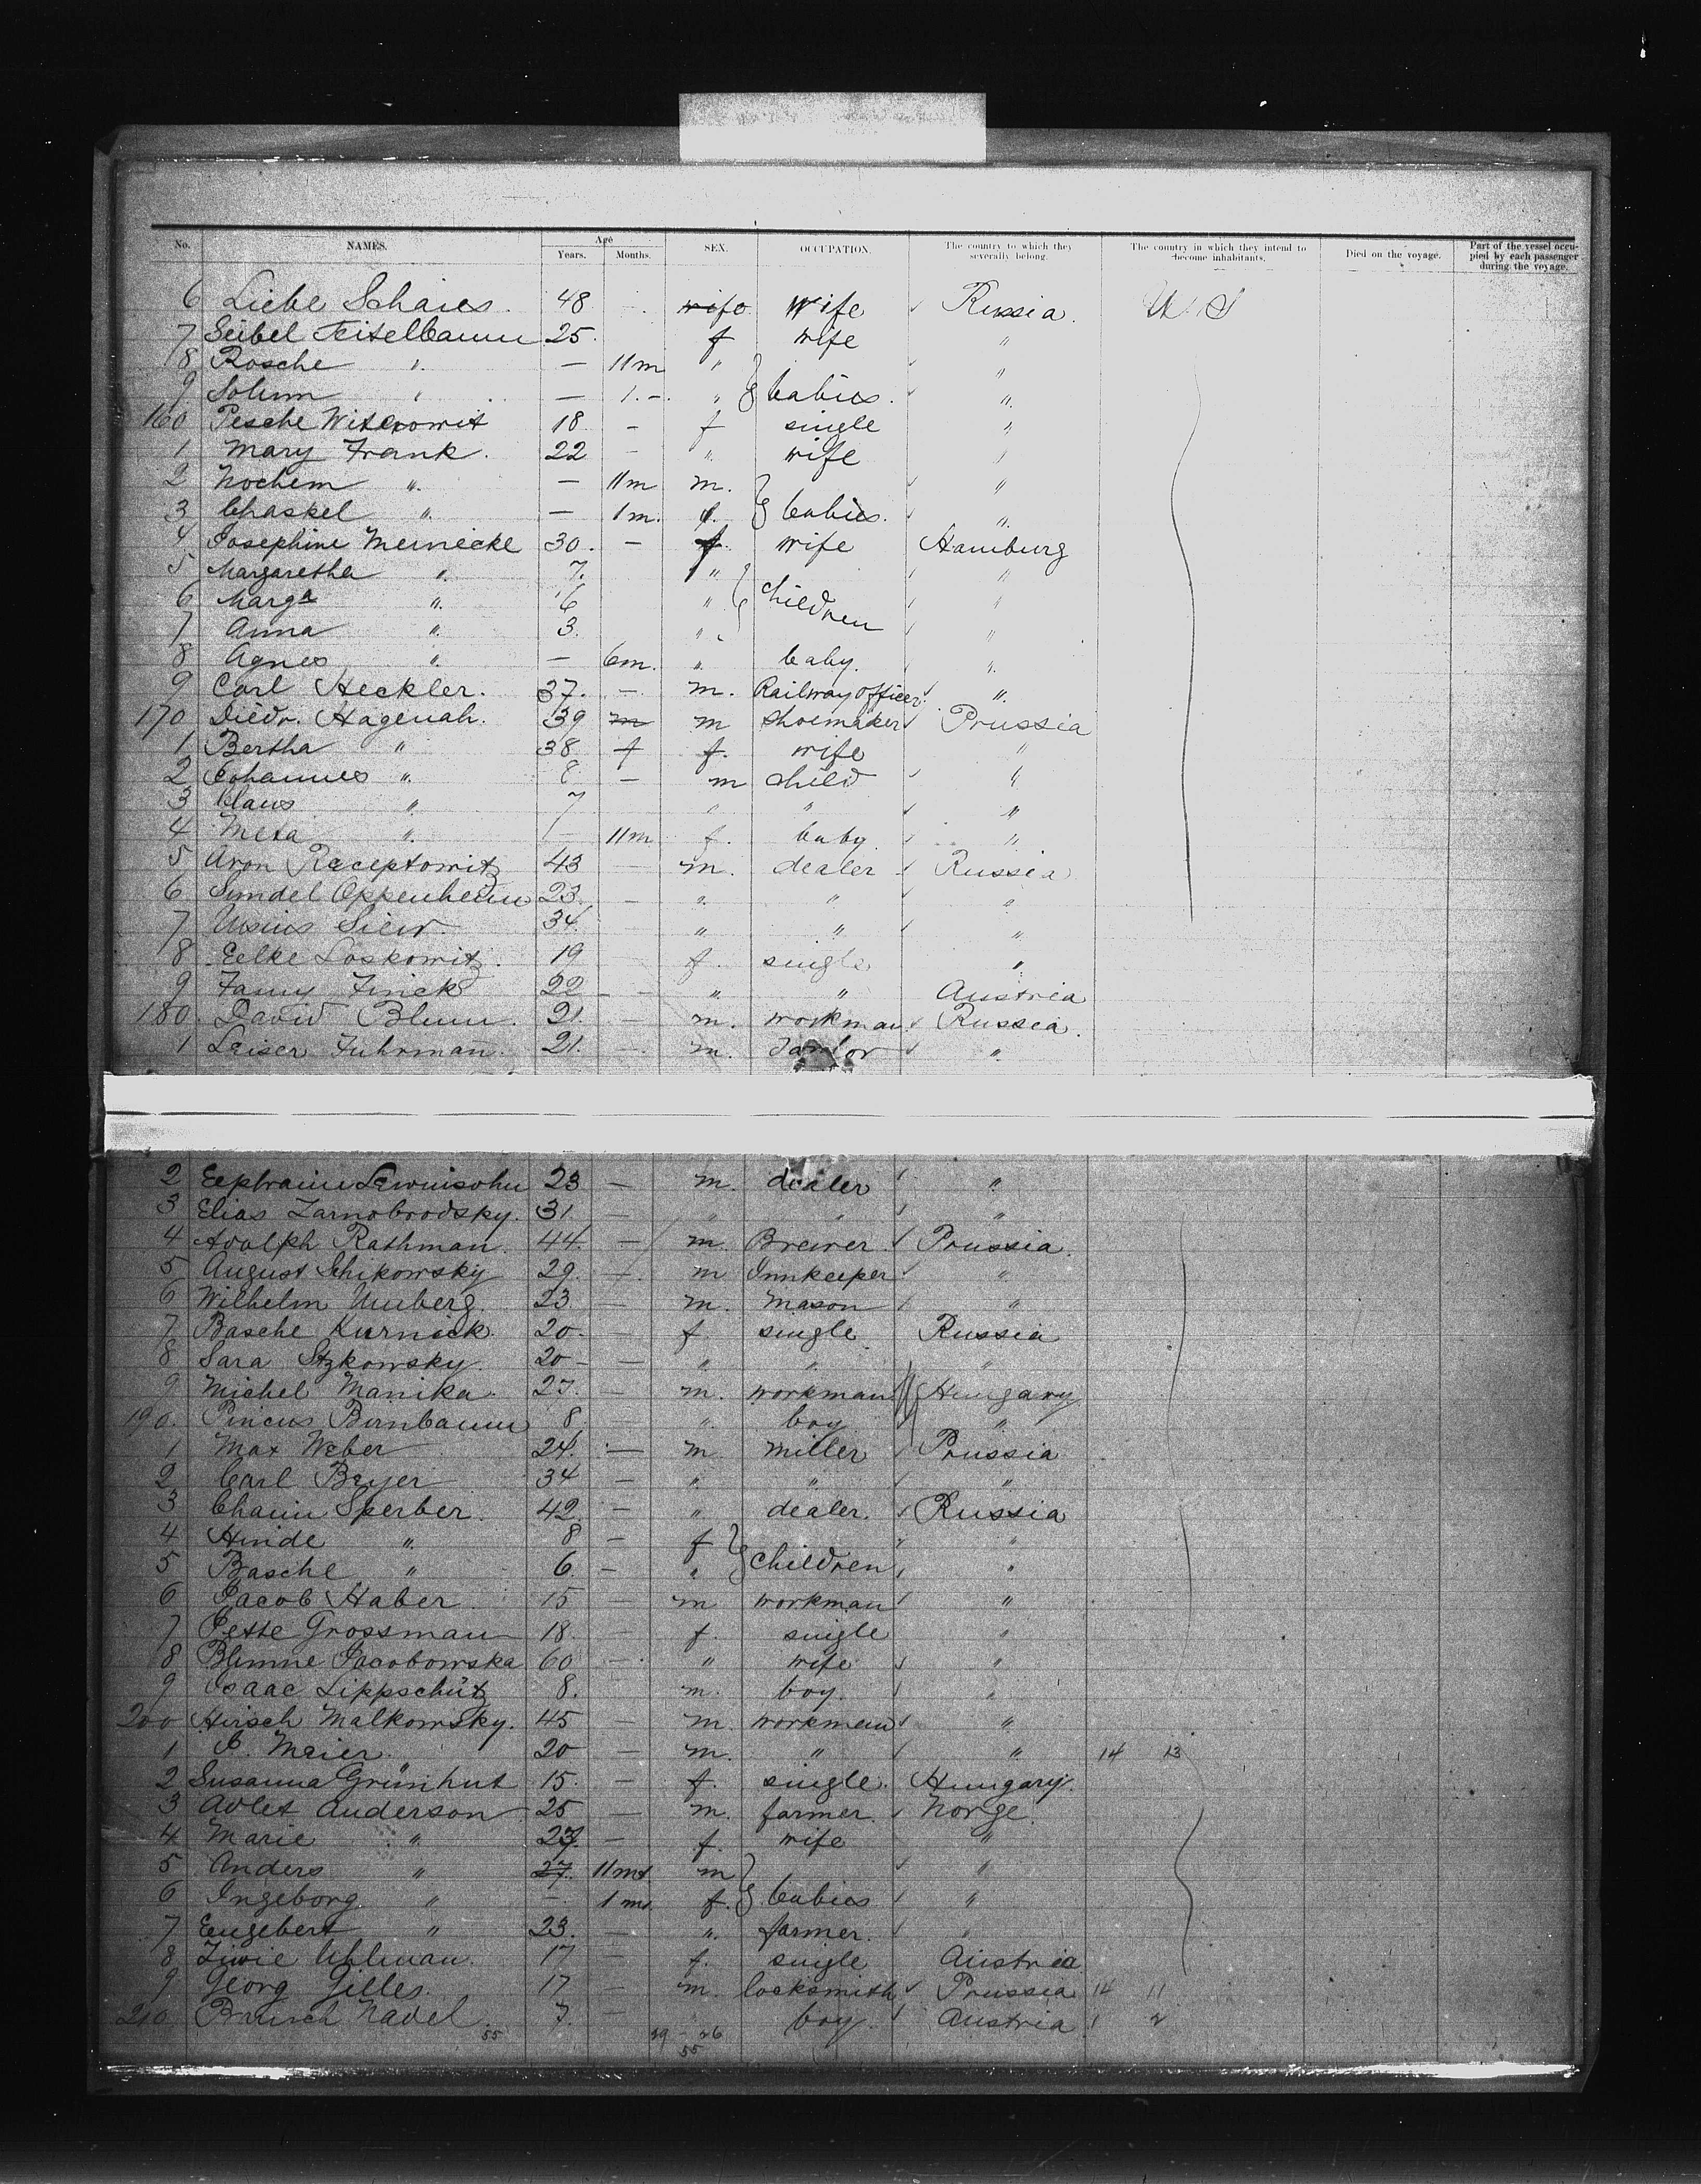 No. NAMES. Age Years. Months. SEX. OCCUPATION. The country to which they severally belong. The country in which they intend to become inhabitants. Died on the voyage. Part of the vessel occupied by each passenger during the voyage.
6 Liebe Schaies 48 wife wife Russia U. S
7 Seibel Teitelbaum 25 f wife "
8 Rosche " — 11m " "
9 Solum " — 1 - " babies "
160 Pesche Witkowit 18 - f single "
1 Mary Frank. 22 - " wife "
2 Nochem " — 11m m. "
3 Chaskel " — 1m. f. babies. "
4 Josephine Meinecke 30. - f. wife Hamburg
5 Margaretha " 7. " "
6 Marga " 6 " children "
7 Anna " 3. " "
8 Agnes " — 6m. " baby. "
9 Carl Heckler. 37. - m. Railway officer "
170 Diedr. Hagenah. 39 m m shoemaker Prussia
1 Bertha " 38 f f. wife "
2 Johannes " 8 — m child "
3 Claus " 7 " " "
4 Meta " — 11m f. baby "
5 Aron Receptowitz 43 m. dealer Russia
6 Simdel Oppenheim 23. - " " "
7 Usius Siew 34. " " "
8 Eelke Loskowitz. 19 f. single "
9 Fanny Finck 22 - " " Austria
180. David Blum. 21. - m. workman Russia.
1 Leiser Fuhrman. 21. - m. Tailor "
2 Eephraim Lewinsohn 23 — m. dealer "
3 Elias Zarnobrodsky. 31. — " " "
4 Adolph Rathman. 44. — m. Brewer Prussia.
5 August Schikowsky 29. — m Innkeeper "
6 Wilhelm Umberg. 23 — m. mason "
7 Basche Kurnick. 20. — f. single Russia
8 Sara Sizkowsky. 20 - — " " "
9 Michel Manika. 27. — m. workman Hungary
190. Pincus Birnbaum 8. — " boy "
1 Max Weber 24. — m miller Prussia
2 Carl Beyer 34 — " " "
3 Chaim Sperber. 42. — " dealer. Russia
4 Hinde " 8 — f "
5 Basche " 6. — " children "
6 Jacob Haber. 15 — m workman "
7 Jette Grossman 18. — f. single "
8 Blimne Jacobowska 60 — " wife "
9 Isaac Lippschütz 8. m. boy. "
200 Hirsch Malkowsky. 45 m. workman "
1 J. Meier. 20 — m. " " 14 13
2 Susanna Grünhut 15. — f. single. Hungary.
3 Avlet Anderson 25 — m. farmer. Norge.
4 Marie " 27. — f. wife "
5 Anders " 27. 11ms m "
6 Ingeborg " — 1 ms f. babies "
7 Engebert " 23. — " farmer. "
8 Ziwie Uhlman. 17 — f. single Austria
9 Georg Gilles. 17 — m. locksmith Prussia 14 11
210 Barisch Nadel. 7. — boy. Austria 1 2
55 29 - 26
55